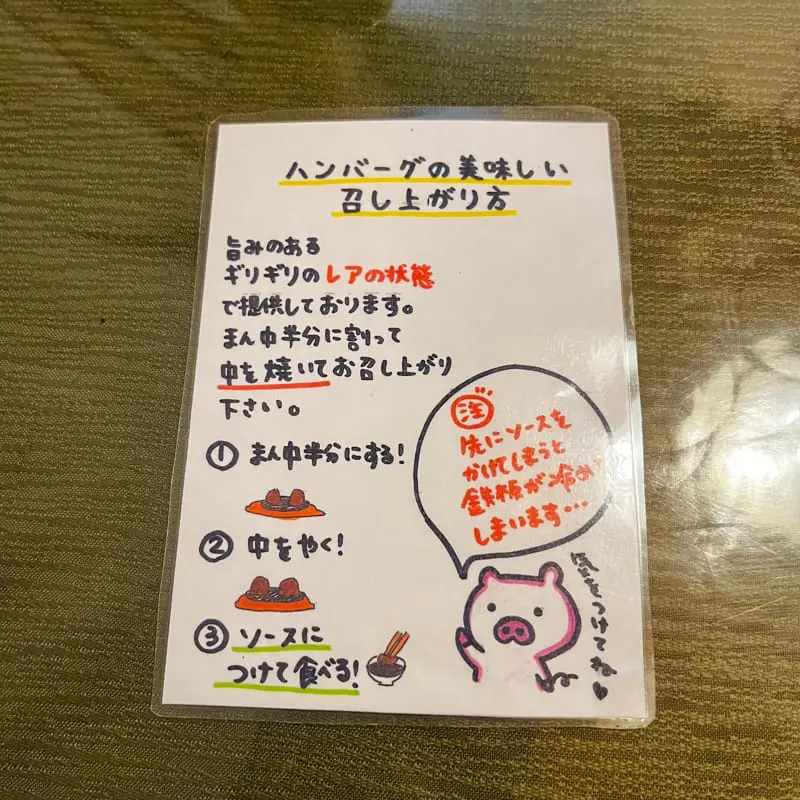 ハンバーグの美味しい
召し上がり方
旨みのある
ギリギリのレアの状態
で提供しております。
まん中半分に割って
中を焼いてお召し上がり
下さい。
① まん中半分にする!
② 中をやく!
③ ソースに
つけて食べる!
注
先にソースを
かけてしまうと
鉄板が冷め
しまいます…
気をつけてね♥